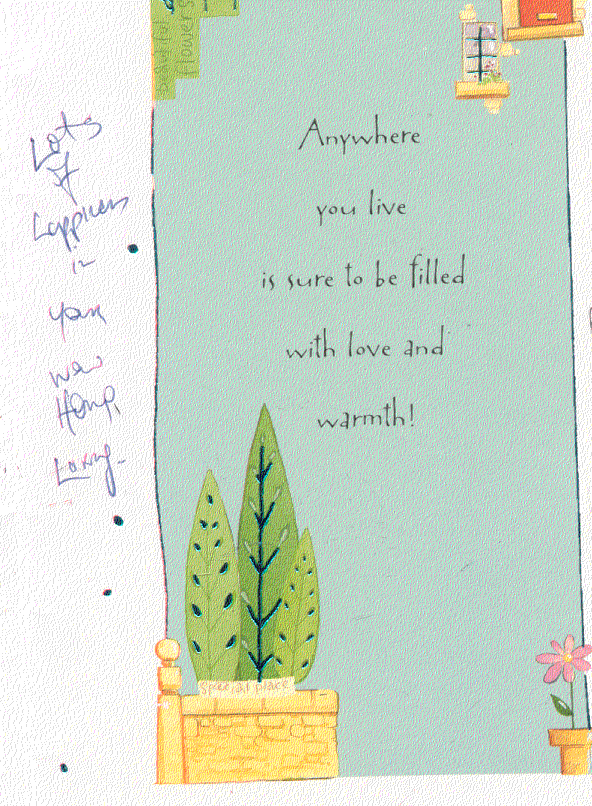 beautiful
flowers
Anywhere
you live
is sure to be filled
with love and
warmth!
special place
Lots
of
happiness
in
your
new
Home,